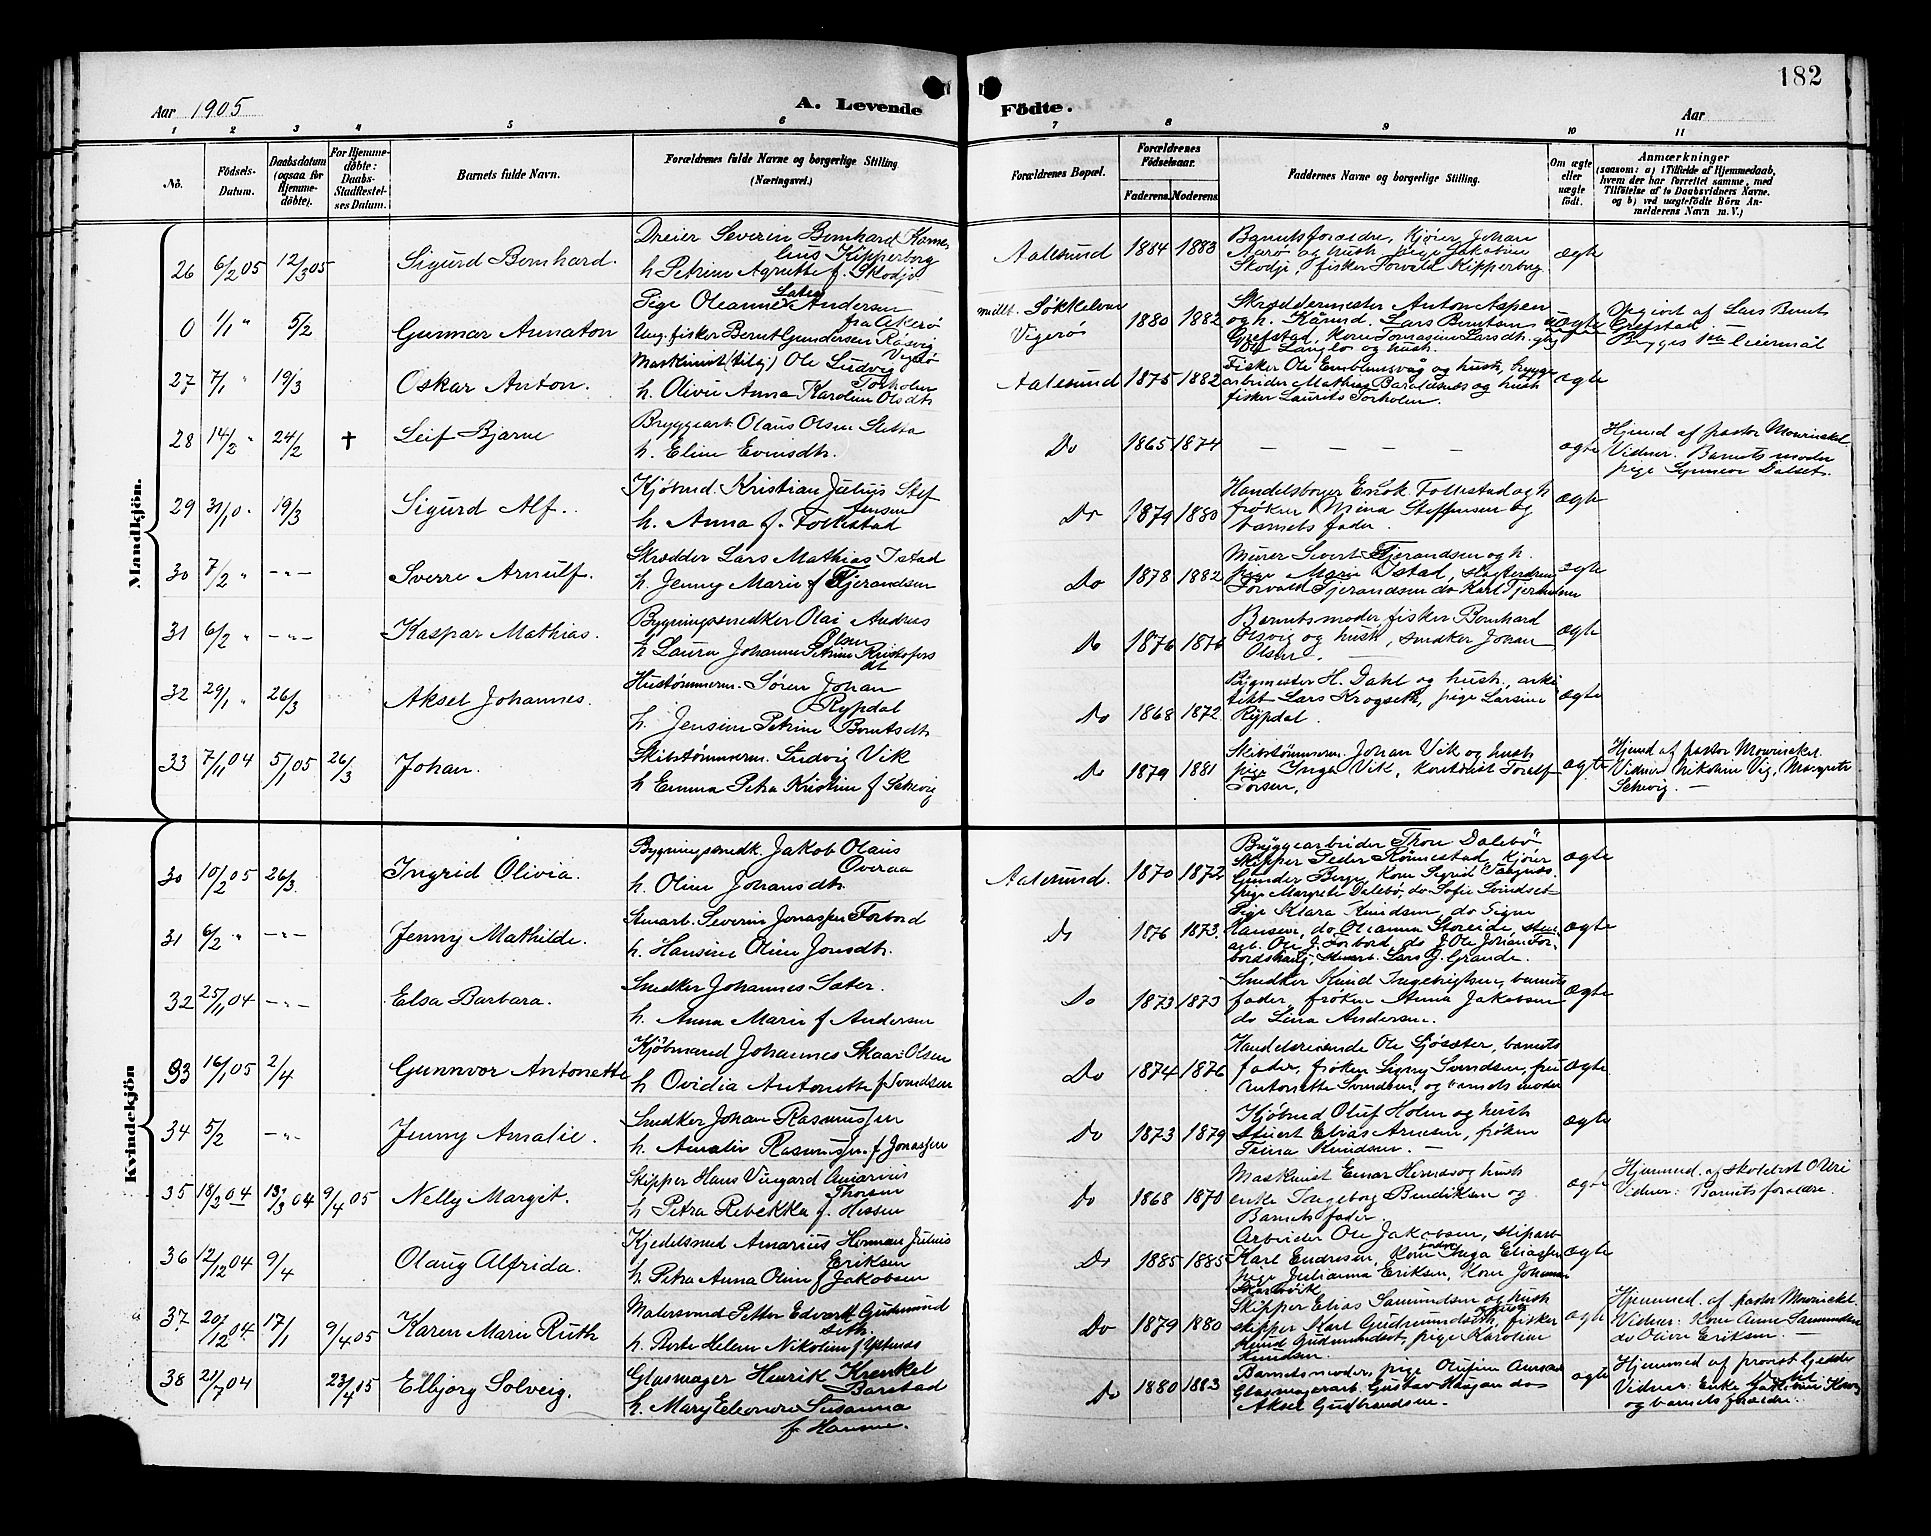 182
Aar 1905
A. Levende Födte.
Aar
1 2 3 4 5 6 7 8 9 10 11
No.
Födsels-Datum.
Daabsdatum (ogsaa for Hjemme-döbte).
For Hjemme-döbte: Daabs-Stadfæstel-ses Datum.
Barnets fulde Navn.
Forældrenes fulde Navne og borgerlige Stilling (Næringsvei).
Forældrenes Bopæl.
Forældrenes Födselsaar.
Faderens. Moderens.
Faddernes Navne og borgerlige Stilling.
Om ægte eller uægte födt.
Anmærkninger
(saasom: a) i Tilfælde af Hjemmedaab, hvem der har forrettet samme, med Tilföielse af to Daabsvidners Navne, og b) ved uægtefödte Börn An-melderens Navn m. V.)
Mandkjön.
26 6/2 05 12/3 05 Sigurd Bernhard.
Dreier Severin Bernhard Korne-
lius Kipperberg
h. Petrine Agnette f. Skodje
Aalesund 1884 1883
Barnets forældre, Kjører Johan
Aarø og hust, pige Jakobine
Skodje, fisker Torvald Kipperberg
ægte
0 1/1 " 5/2 Gunnar Annaton
Pige Oleanne Andersen
fra Akerø
Ung. fisker Bernt Gundersen Røsvig
Vigerø
midlt. Søkkelven
Vigerø
1880 1882
Skræddermester Anton Aspen
og h. Lars Berntsen
Grefstad,
uægte
Opgivet af Lars Bernts
Grefstad. —
Begges 1ste leiermål
27 7/1 " 19/3 Oskar Anton.
Maskinist (tilg) Ole Ludvig
Torholm
h. Olive Anna Karoline Olsdt.
Aalesund 1875 1882
Fisker Ole Emblemsvåg og hust, brygge-
arbeider Mathias Baraldsnes og hust
fisker Laurits Torholm.
ægte
28 14/2 " 24/2 † Leif Bjarne
Bryggearb. Olaus Olsen Sletta
h. Eline Evensdtr.
Do 1865 1874
— — — —
ægte
Hjemd af pastor Mowinckel
Vidner: Barnets moder
pige Synneve Dalset.
29 31/10 " 19/3 Sigurd Alf.
Kjøbmd. Kristian Julius Stef
fensen
h. Anna f. Folkestad
Do 1874 1880
Handelsborger Enok Folkestad og h
frøken Mina Steffensen og
barnets fader.
ægte
30 7/2 " —"— Sverre Arnulf.
Skrædder Lars Mathias Istad
h. Jenny Marie f Fjerandsen
Do 1878 1882
Murer Sivert Fjerandsen og h.
pige Marie Istad, slagterdreng
Torvald Fjerandsen do Karl Fjerandsen
ægte
31 6/2 " —"— Kaspar Mathias.
Bygningssnedker Olai Andreas
Olsen
h Laura Johanne Petrine Kristofers
dt
Do 1876 1876
Barnets moder, fisker Bernhard
Olsvig og hust, snedker Johan
Olsen. —
ægte
32 29/1 " 26/3 Aksel Johannes.
Hustømmerm. Søren Johan
Rypdal
h. Jensine Petrine Berntsdt.
Do 1868 1872
Bygmester H. Dahl og hust. arki-
tekt Lars Krogseth, pige Larsine
Rypdal.
ægte
33 7/11 04 5/1 05 26/3 Johan.
Skibstømmerm. Ludvig Vik
h Emma Petra Kristine f Schevig
Do 1879 1881
Skibstømmerm. Johan Vik og hust
pige Inga Vik, kontorist Toralf
Torsen,
ægte
Hjemd af pastor Mowinckel.
Vidner Nikoline Vig, Margrete
Schevig. —
Kvindekjön
30 10/2 05 26/3 Ingrid Olivia.
Bygningssnedk. Jakob Olaus
Overaa
h. Oline Johansdtr.
Aalesund. 1870 1872
Bryggearbeider Thore Dalebø
Skipper Peder Rønnestad, kjører
Gunder Berge, Kone Sigrid
pige Margrete Dalebø, do Sofie Svindset
ægte
31 6/2 " —"— Jenny Mathilde.
Stenarb. Severin Jonassen Forbord
h. Hansine Oline Jonsdtr.
Do 1876 1873.
Pige Klara Knudsen, do Signe
Hansen, do Olianna Storeide, sten-
arb. Ole J. Forbord, do J. Ole Johan For-
bordshaug, stenarb. Lars J. Grande.
ægte
32 25/11 04 —"— Elsa Barbara.
Snedker Johannes Sæter.
h. Anna Marie f Andersen
Do 1873 1873
Snedker Knud Ingebrigtsen, barnets
fader, frøken Anna Jakobsen
do Lina Andersen.
ægte
33 16/1 05 2/4 Gunnvor Antonette
Kjøbmand Johannes Skaar-Olsen
h Ovidia Antonette f Svendsen
Do 1874 1876
Handelsreisende Ole Sjøsæter, barnets
fader, frøken Signy Svendsen, fru
Antonette Svendsen, og barnets moder
ægte
34 5/2 —"— Jenny Amalie.
Snedker Johan Rasmussen
h. Amalie Rasmussen f Jonassen
Do 1873 1879
Kjøbmd Oluf Holm og hust
Stuert Elias Arnesen, frøken
Trina Knudsen —
ægte
35 18/2 04 13/3 04 9/4 05 Nelly Margit.
Skipper Hans Vingard Amarius
Thorsen
h Petra Rebekka f. Hessen
Do 1868 1870
Maskinist Einar Hernes og hust
enke Ingeborg Bendiksen og
Barnets fader.
ægte
Hjemmed. af skolebest O Uri
Vidner: Barnets forældre.
36 12/12 04 9/4 Olaug Alfrida.
Kjedelsmed Amarius Herman Julius
Eriksen
h Petra Anna Oline f Jakobsen
Do 1885 1885
Arbeider Ole Jakobsen, sliparb
Karl Endresen, Kone Inga Eliassen
pige Julianna Eriksen, Kone Johanna
ægte
37 20/12 04 17/1 9/4 05 Karen Marie Ruth
Malersvend Petter Edvart Gudmund
seth
h. Perte Helene Nikoline f Ystenes
Do 1879 1880
Skipper Elias Samundsen og hust
skipper Karl Gudmundseth, fisker
Knud Gudmundset, pige Karoline
Knudsen.
ægte
Hjemmed. af pastor Mowinckel.
Vidner: Kone Anne Samundsen
do Olive Eriksen. —
38 21/7 04 23/4 05 Elbjorg Solveig.
Glasmager Henrik Krenkel
Barstad
h. Mary Eleonore Susanna
f. Hansen.
Do 1880 1883
Barnets moder, pige Olufine
Glasmagerarb. Gustav do
Aksel Gudbrandsen.
ægte
Hjemmed af provst Gedde
Vidner: Enke
og barnets forældre.